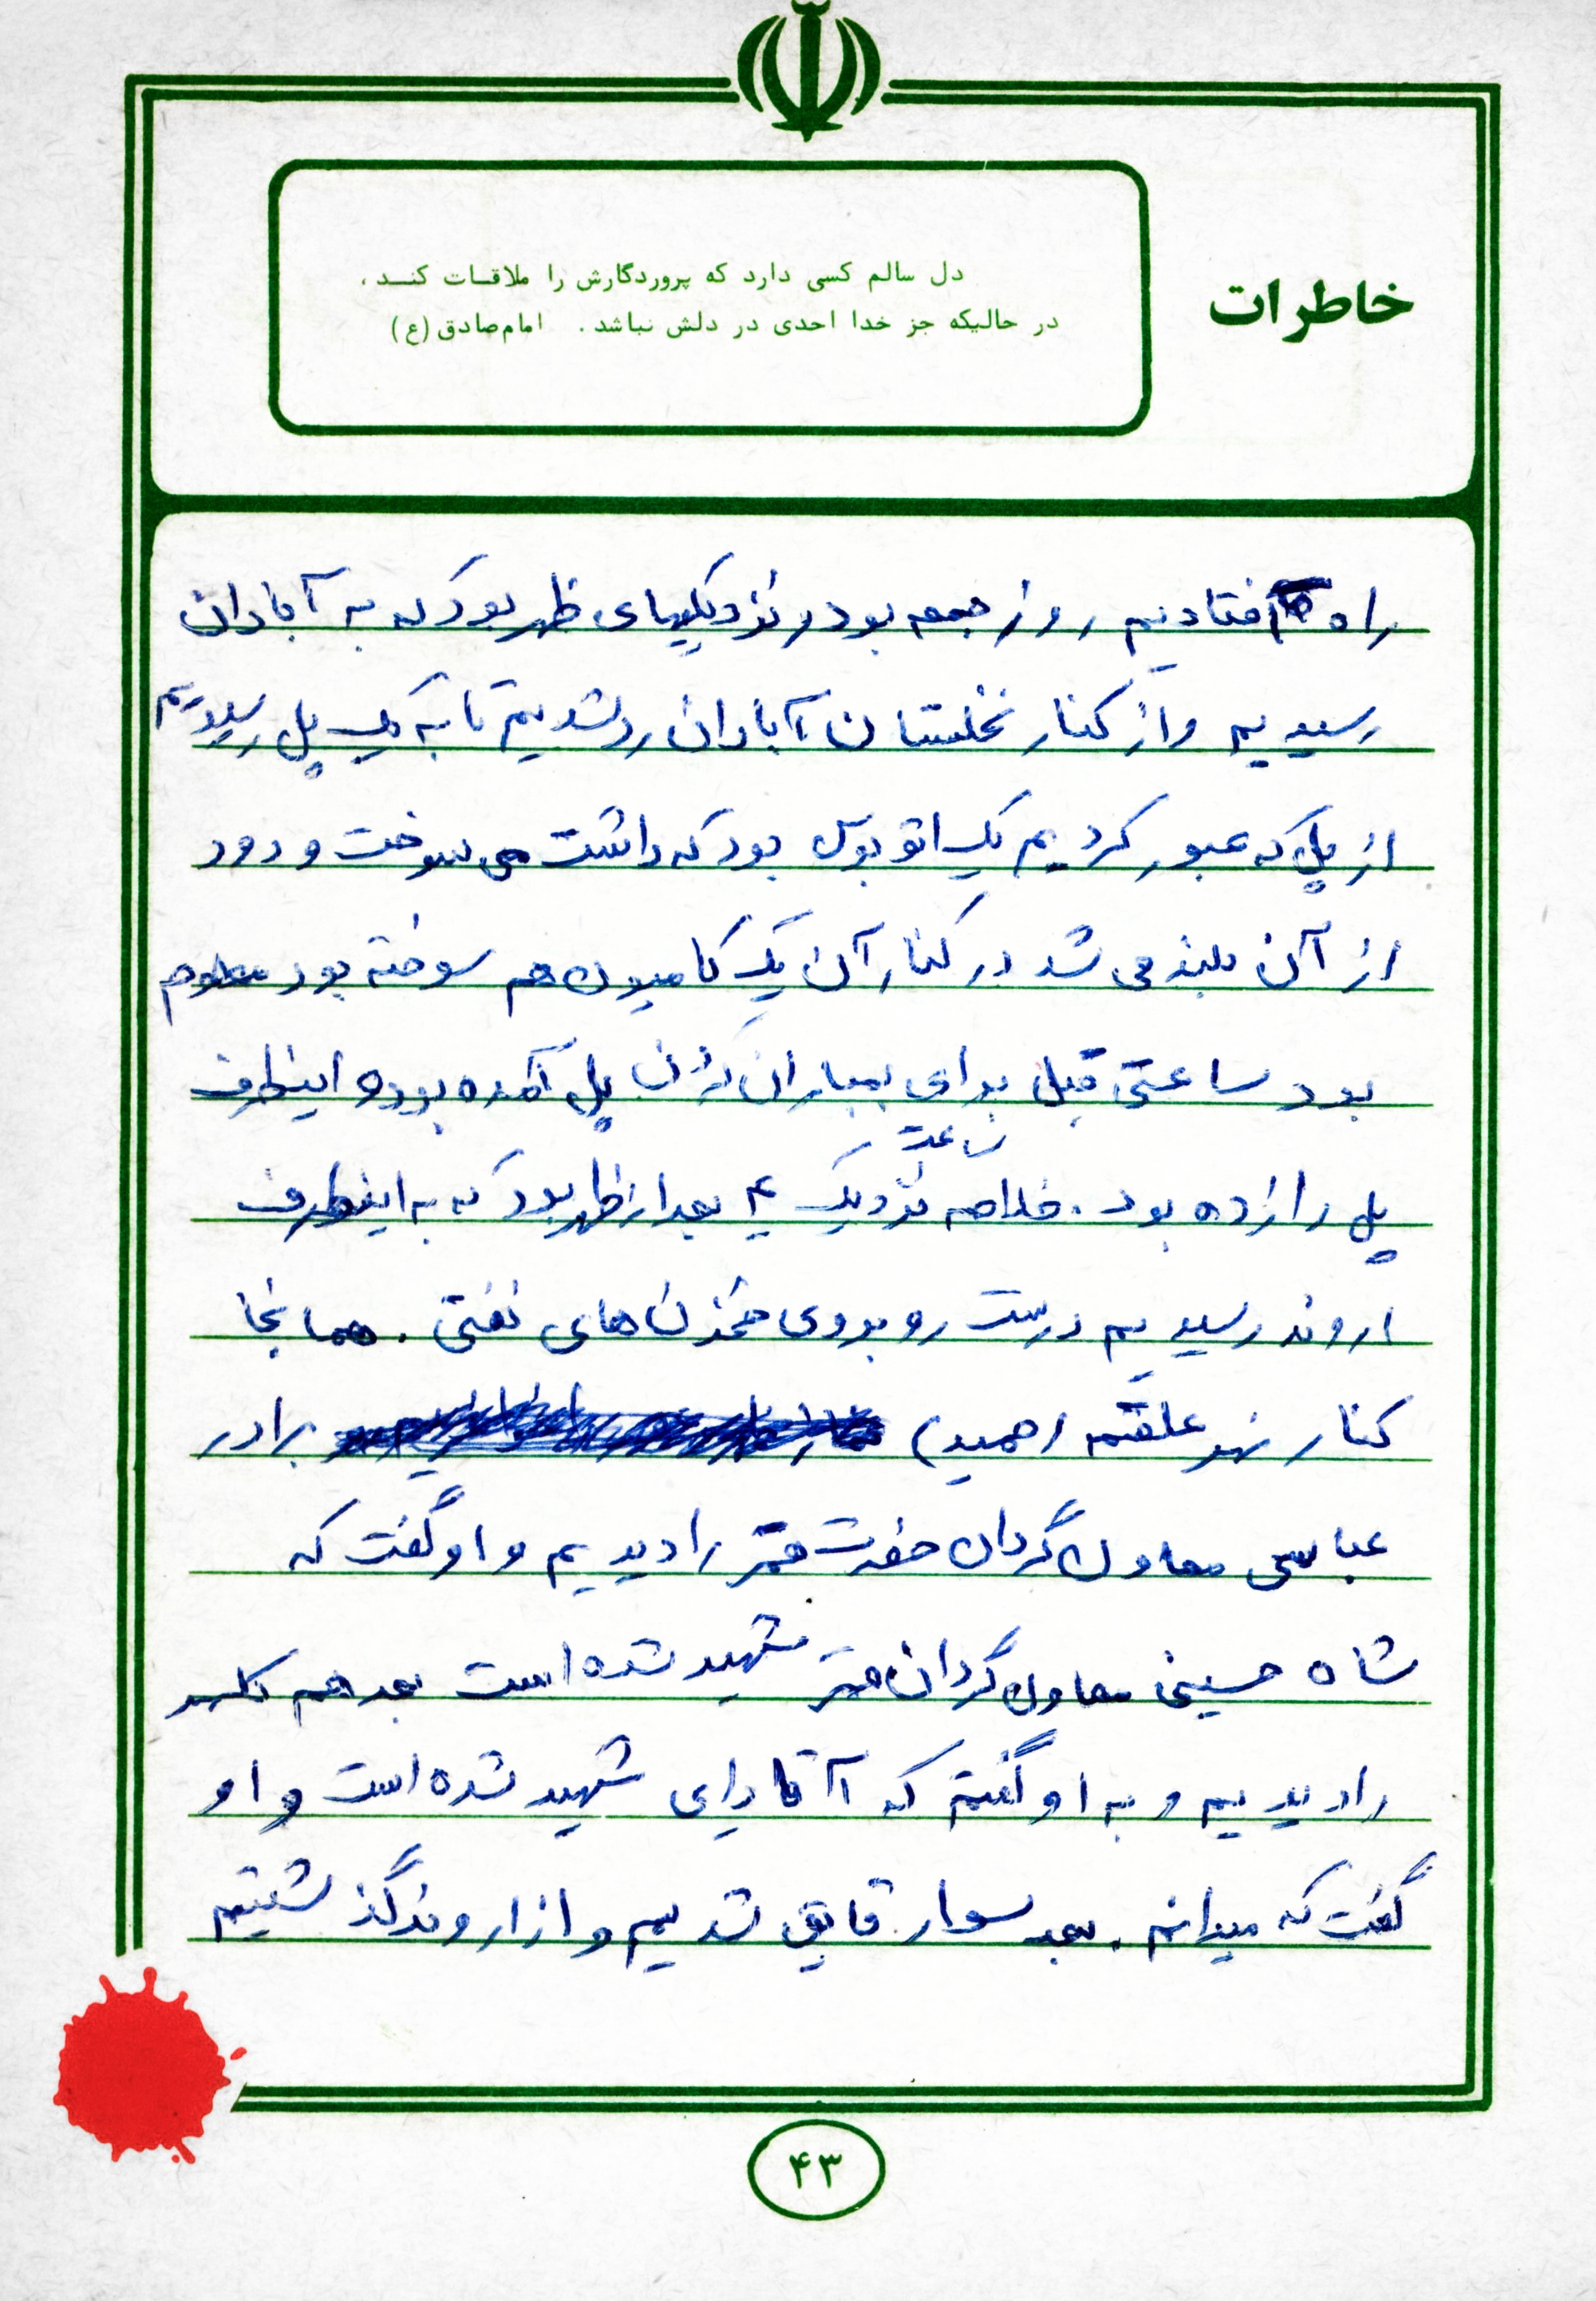 خاطرات
دل سالم کسی دارد که پروردگارش را ملاقات کند،
در حالیکه جز خدا احدی در دلش نباشد. امام صادق (ع)
راه افتادیم روز جمعه بود در نزدیکیهای ظهر بود که به آبادان
رسیدیم واز کنار نخلستان آبادان رد شدیم تا به یک پل رسیدیم
از پل که عبور کردیم یک اتوبوس بود که داشت می سوخت و دود
از آن بلند می شد در کنار آن یک کامیون هم سوخته بود معلوم
بود ساعتی قبل برای بمباران کردن پل آمده بوده اینطرف
پل را زده بود. خلاصه نزدیک ساعت ۴ بعد از ظهر بود که به اینطرف
اروند رسیدیم درست روبروی مخزن های نفتی. همانجا
کنار نهر علقمه (حمید) برادر
عباسی معاون گردان حضرت قمر را دیدیم و او گفت که
شاه حسینی معاون گردان قمر شهید شده است بعد هم
را دیدیم و به او گفتم که آقا شهید شده است و او
گفت که میدانم. بعد سوار قایق شدیم و از اروند گذشتیم
۴۳